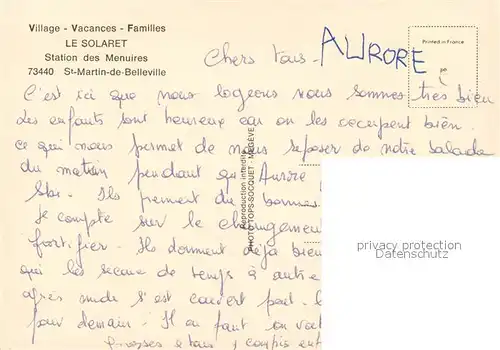 Village - Vacances - Familles
LE SOLARET
Station des Menuires
73440 St-Martin-de-Belleville
Printed in France
Chers tous -
AURORE
C'est ici que nous logeons nous sommes très bien
Les enfants sont heureux car on les occupent bien.
ce qui nous permet de nous reposer de notre balade
du matin pendant que Aurore
Ski. Ils prennent du bonnes
Je compte sur le changement
fortifier. Ils dorment déjà bien
qui les secoue de temps à autre
après midi s'est couvert peut-
pour demain. Il en faut on
Grosses à tous y compris
Reproduction interdite
PHOTO TOPS-SOCQUET - MEGEVE
privacy protection
Datenschutz